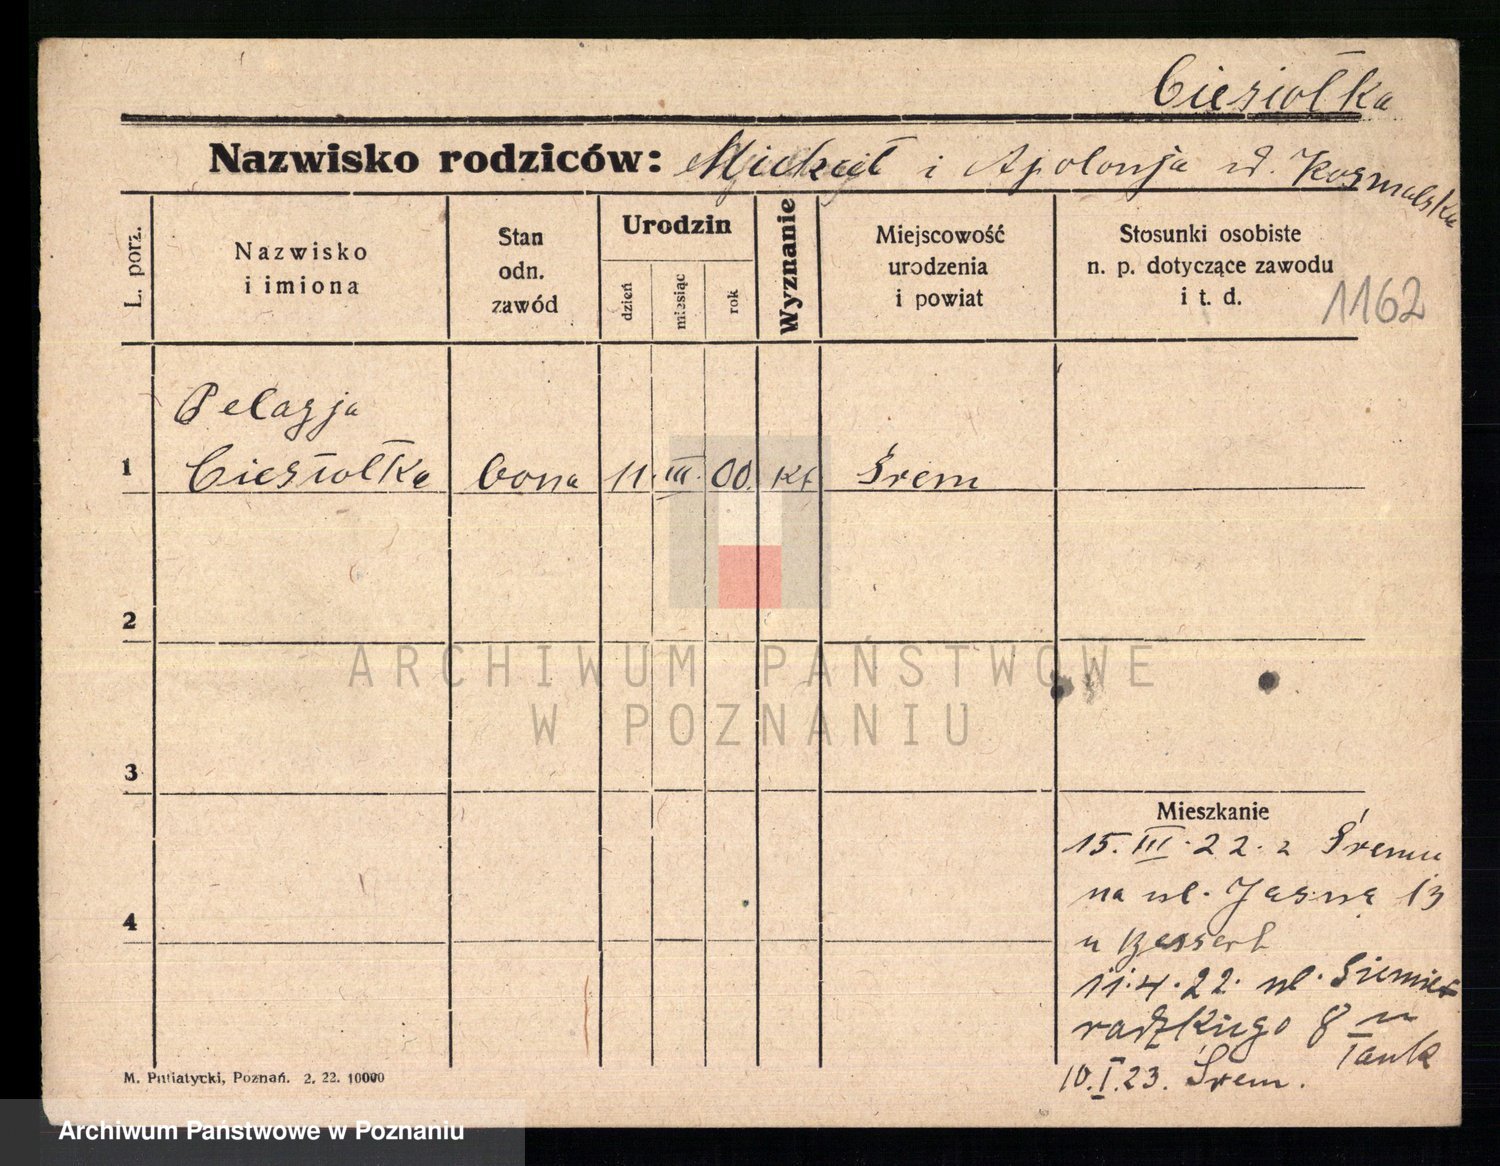 Ciesiołka
Nazwisko rodziców: Michał i Apolonja Kosmalska
L. porz.
Nazwisko
i imiona
Stan
odn.
zawód
Urodzin
dzień
miesiąc
rok
Wyznanie
Miejscowość
urodzenia
i powiat
Stosunki osobiste
n. p. dotyczące zawodu
i t. d.
1162
Pelagja
1 Ciesiołka 11. III. 00. kt Śrem
2
ARCHIWUM PAŃSTWOWE
W POZNANIU
3
Mieszkanie
15. III. 22. z Śremu
na ul. Jasną 13
u
4
11.4.22. ul. Siemi
radzkiego 8 u
10.I.23. Śrem.
M. Putiatycki, Poznań. 2. 22. 10000
Archiwum Państwowe w Poznaniu